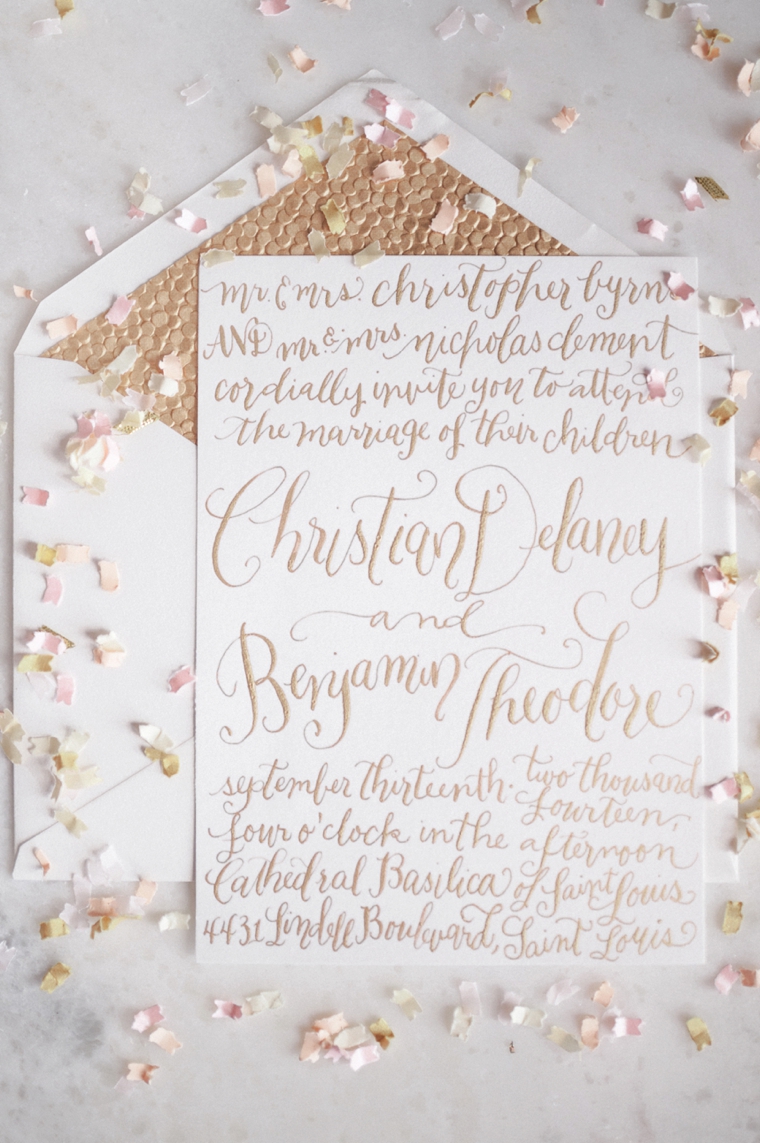 mr. & mrs. christopher byrne
AND mr & mrs. nicholas clement
cordially invite you to attend
the marriage of their children
Christian Delaney
and
Benjamin Theodore
september thirteenth. two thousand
fourteen,
four o'clock in the afternoon
Cathedral Basilica of Saint Louis
4431 Lindell Boulevard, Saint Louis